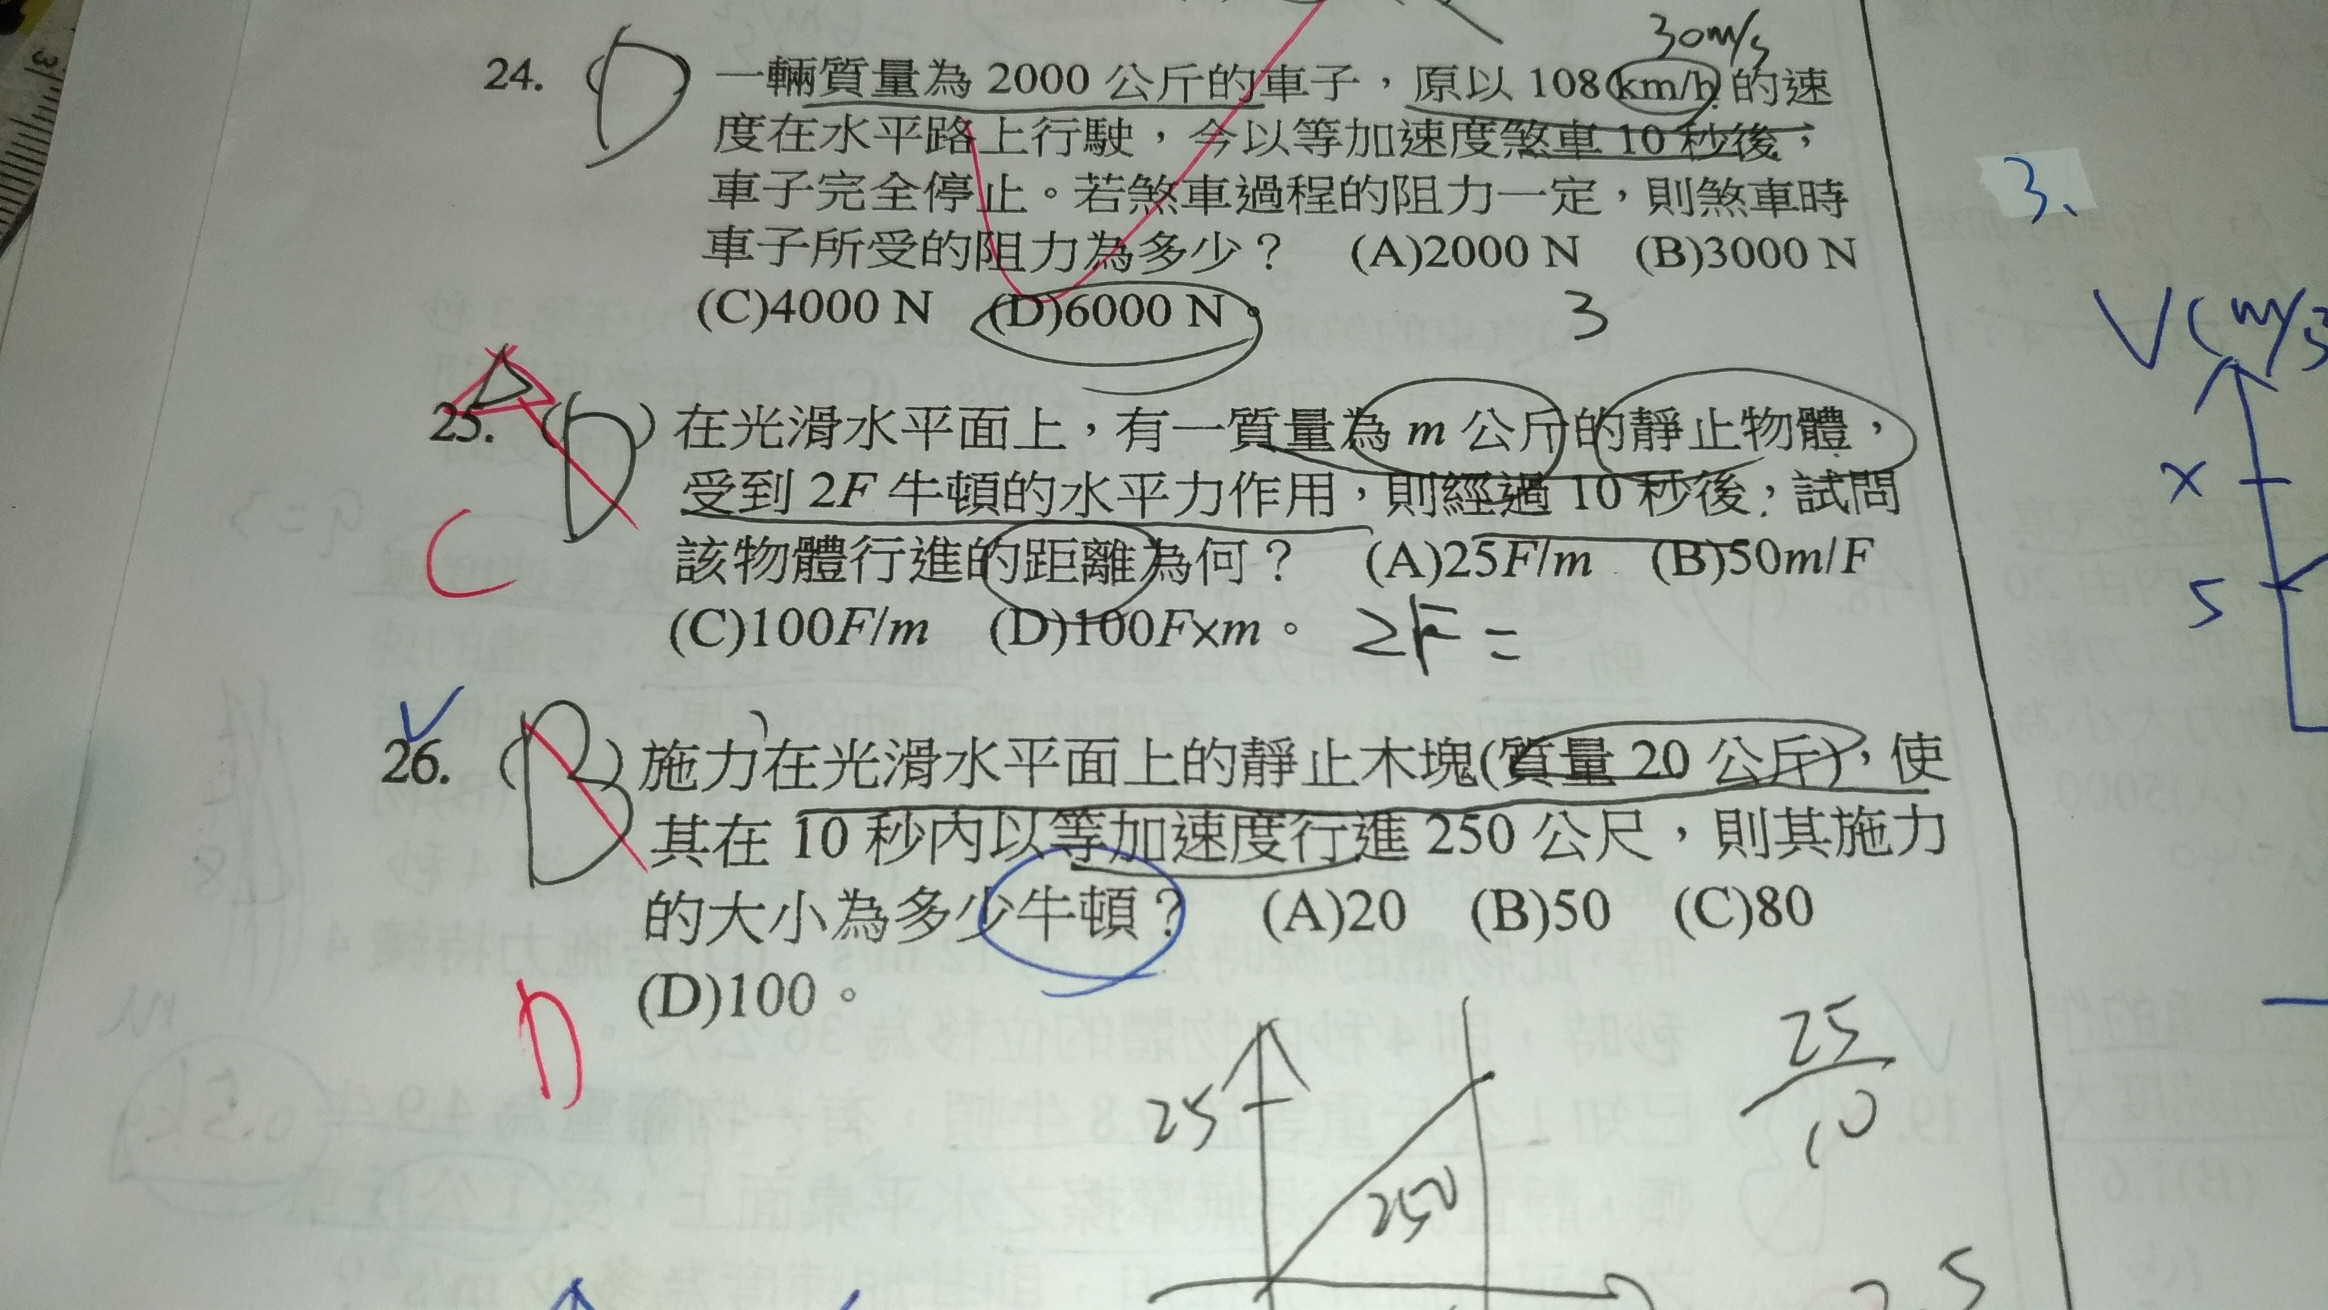 30m/s
24. (D) 一輛質量為 2000 公斤的車子,原以 108 km/h 的速
度在水平路上行駛,今以等加速度煞車 10 秒後,
車子完全停止。若煞車過程的阻力一定,則煞車時
車子所受的阻力為多少? (A)2000 N (B)3000 N
(C)4000 N (D)6000 N。
3
25. (D) 在光滑水平面上,有一質量為 m 公斤的靜止物體,
受到 2F 牛頓的水平力作用,則經過 10 秒後,試問
該物體行進的距離為何? (A)25F/m (B)50m/F
(C)100F/m (D)100F×m。
2F =
C
26. (B) 施力在光滑水平面上的靜止木塊(質量 20 公斤),使
其在 10 秒內以等加速度行進 250 公尺,則其施力
的大小為多少牛頓? (A)20 (B)50 (C)80
(D)100。
D
25
250
25
10
2.5
3、
V(m/s
x
5